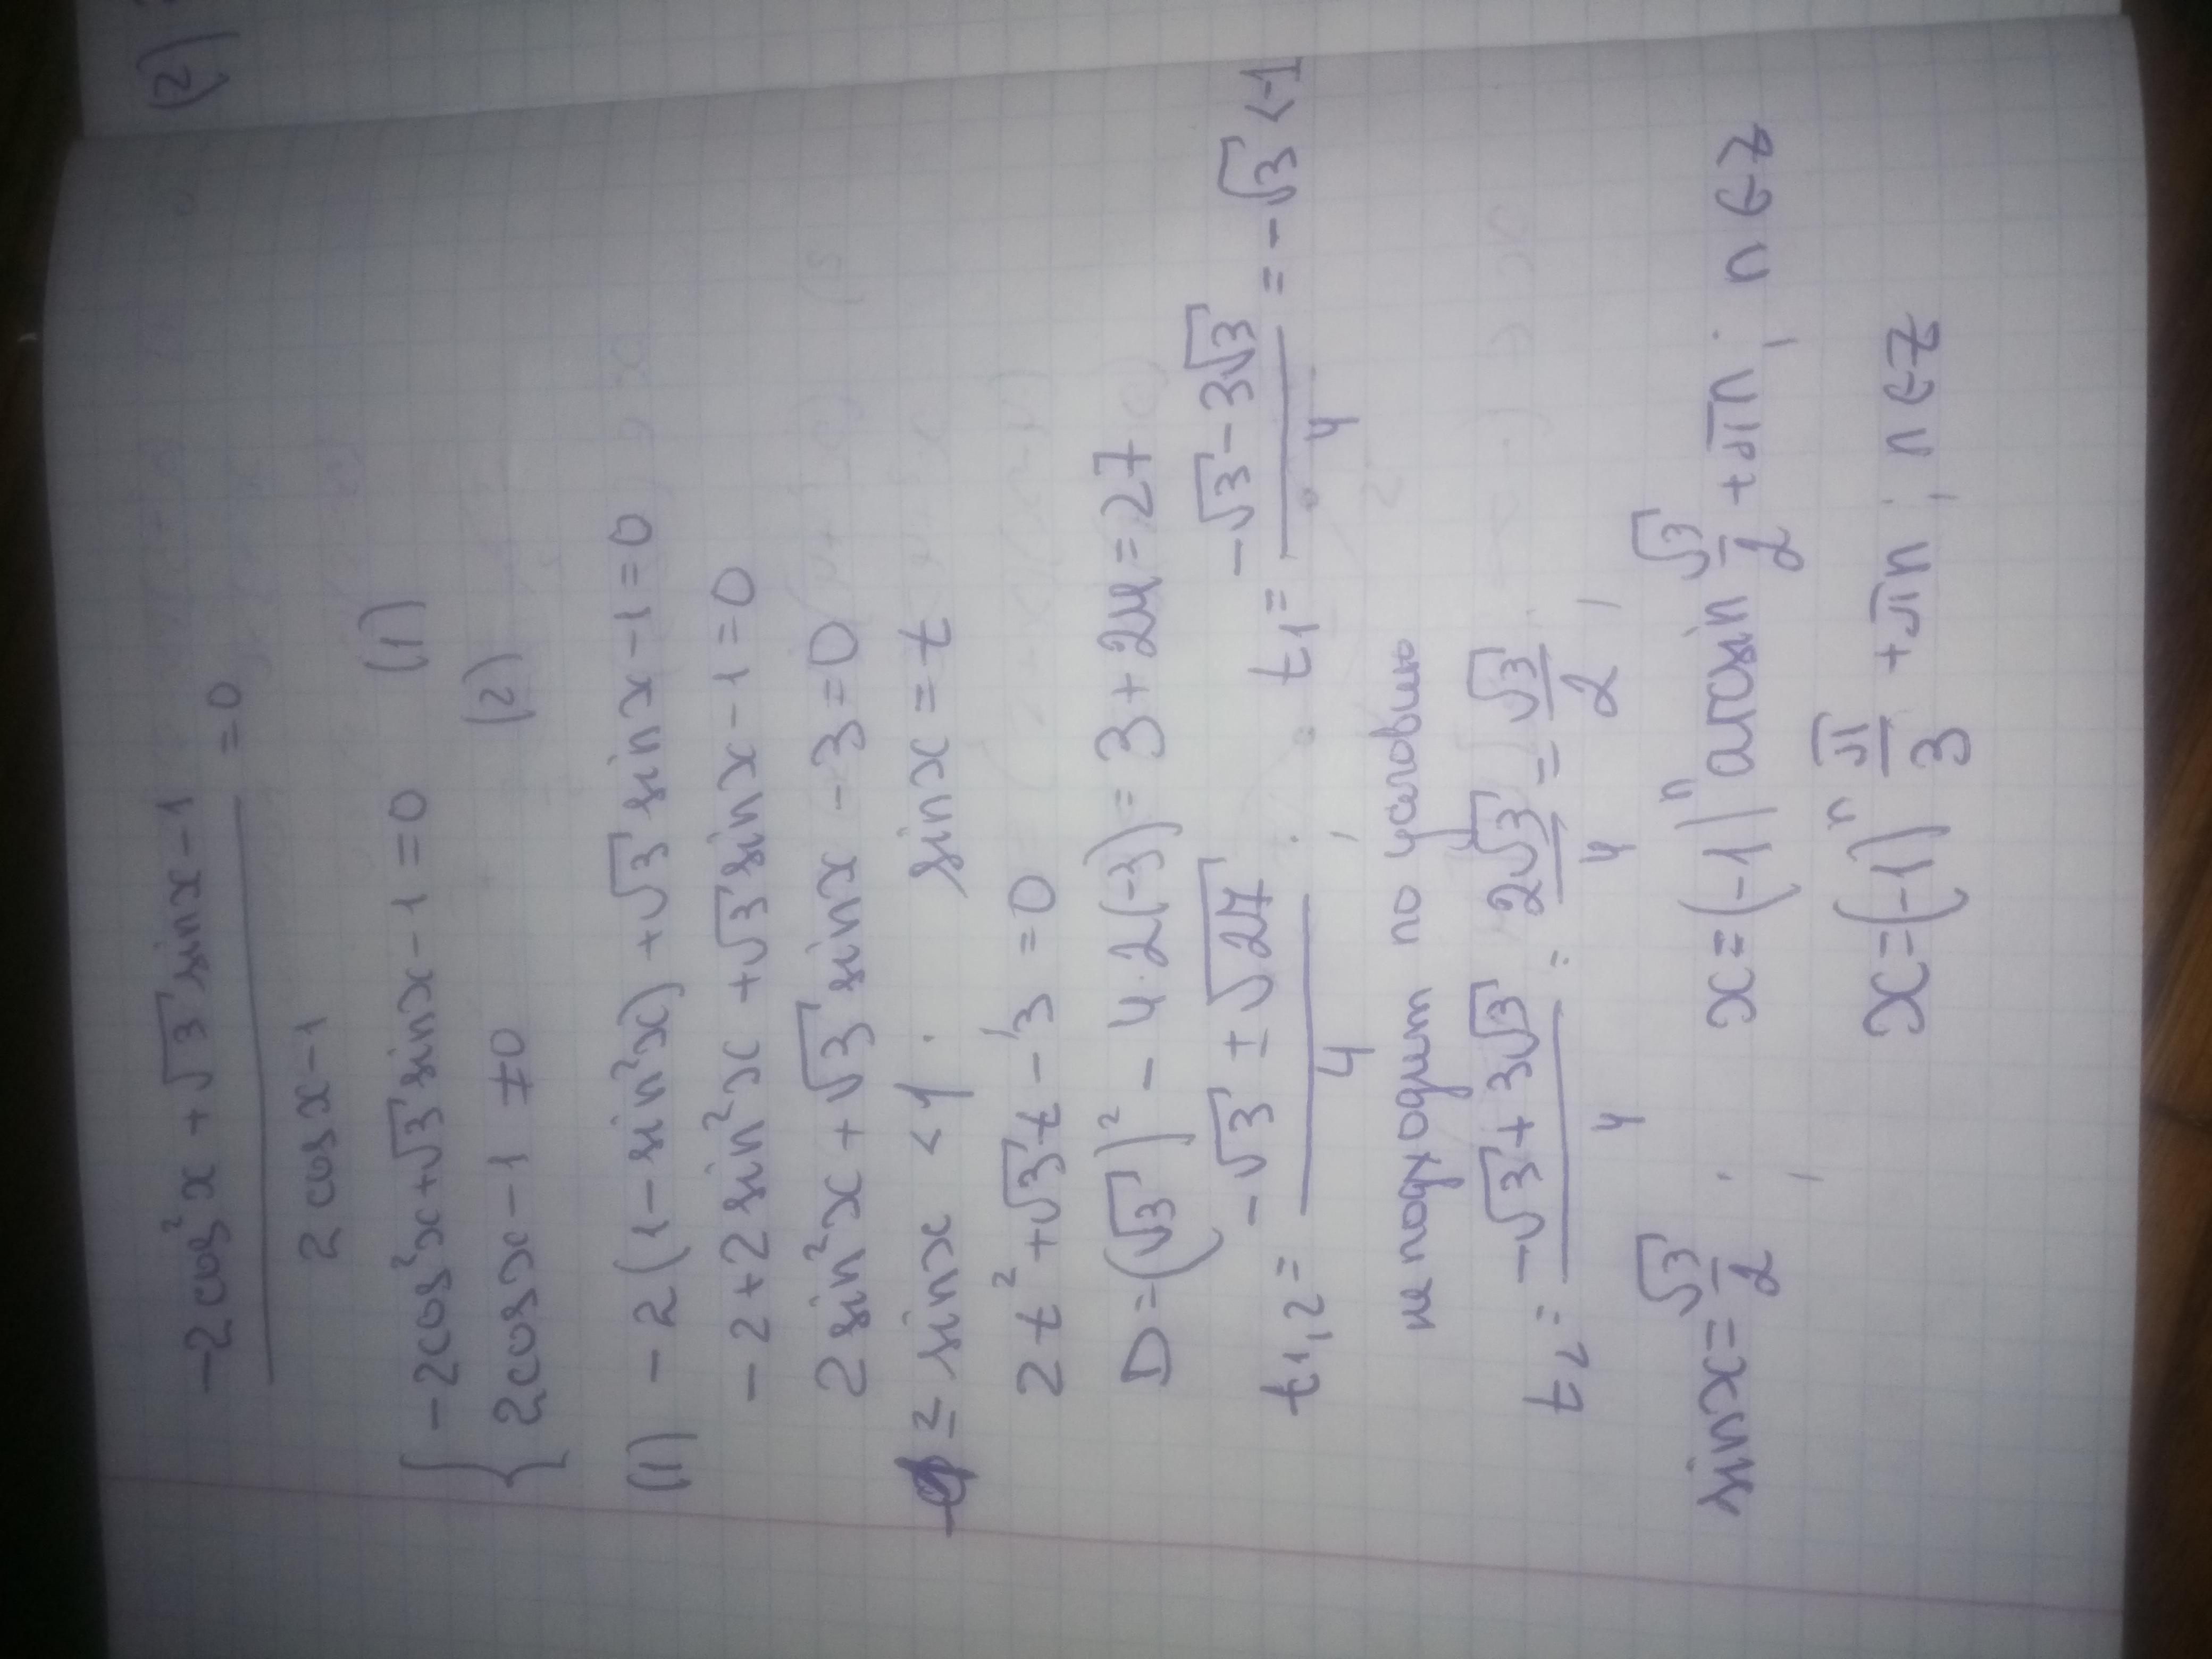 (2)
-2cos²x + √3 sinx - 1
= 0
2cosx - 1
{ -2cos²x + √3 sinx - 1 = 0 (1)
2cosx - 1 ≠ 0 (2)
(1) -2(1 - sin²x) + √3 sinx - 1 = 0
-2 + 2sin²x + √3 sinx - 1 = 0
2sin²x + √3 sinx - 3 = 0
≤ sinx < 1 . sinx = t
2t² + √3t - 3 = 0
D = (√3)² - 4·2(-3) = 3 + 24 = 27
t1,2 = (-√3 ± √27)/4 ; t1 = (-√3 - 3√3)/4 = -√3 < -1
не подходит по условию
t2 = (-√3 + 3√3)/4 = 2√3/4 = √3/2 ;
sinx = √3/2 ; x = (-1)ⁿ arcsin √3/2 + πn ; n ∈ Z
x = (-1)ⁿ π/3 + πn ; n ∈ Z